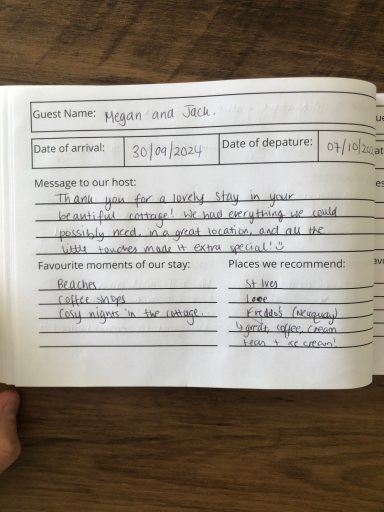 Guest Name: Megan and Jack.
Date of arrival: 30/09/2024 Date of depature: 07/10/202
Message to our host:
Thank you for a lovely stay in your
beautiful cottage! We had everything we could
possibly need, in a great location, and all the
little touches made it extra special! ☺
Favourite moments of our stay:
Beaches
Coffee shops
Cosy nights in the cottage.
Places we recommend:
St Ives
Looe
Freddo's (Newquay)
↳ great, coffee, cream
teas + ice cream!